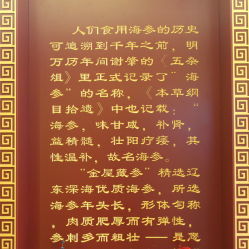 人们食用海参的历史
可追溯到千年之前，明
万历年间谢肇的《五杂
俎》里正式记录了“海
参”的名称，《本草纲
目拾遗》中也记载：“
海参，味甘咸，补肾，
益精髓，壮阳疗痿，其
性温补，故名海参。
“金屋藏参”精选辽
东深海优质海参，所选
海参年头长，形体匀称
，肉质肥厚而有弹性，
参刺多而粗壮——是您